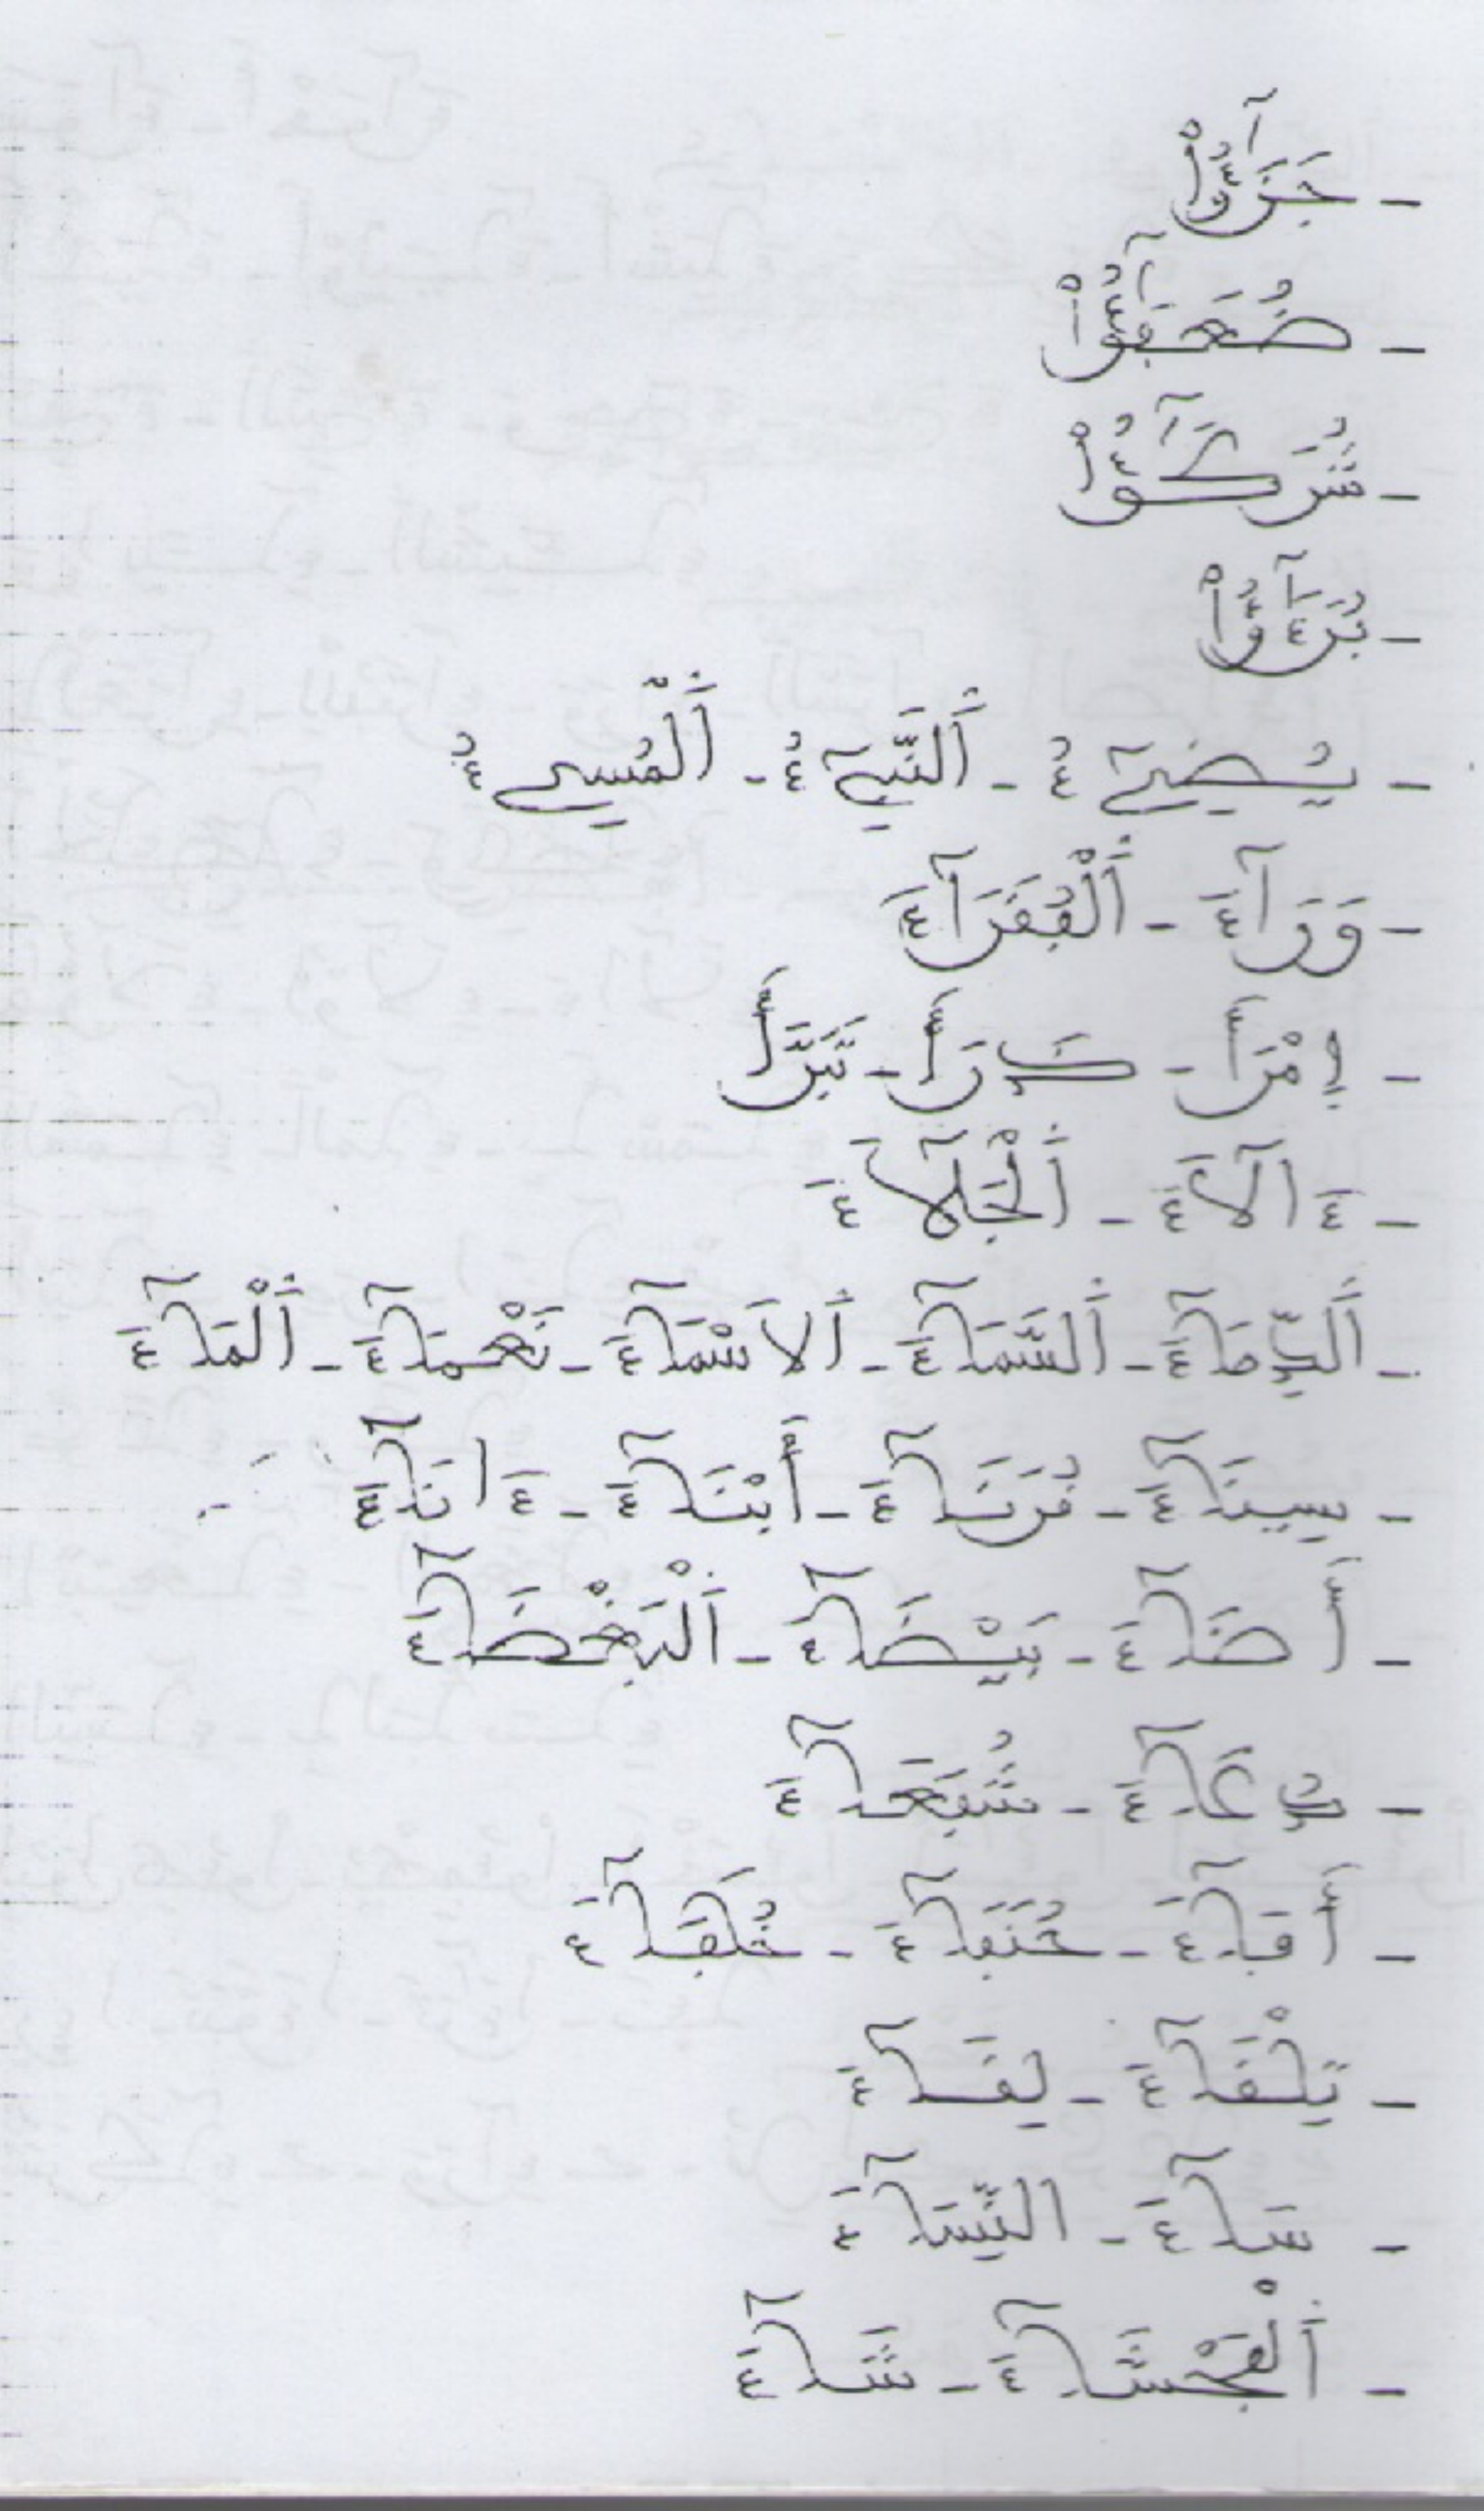 - جَزَٰٓؤُاْ
- ضُعَفَٰٓؤُاْ
- شُرَكَٰٓؤُاْ
- بُرَءَٰٓؤُاْ
- يُضِےٓءُ - اَلنَّبِےٓءُ - اَلْمُسِےٓءُ
- وَرَآءَ - اَلْفُقَرَآءَ
- اِقْرَأْ - تَبَرَّأَ
- ءَالَآءَ - اَلْجَلَآءَ
- اَلدِّمَآءَ - اَلسَّمَآءَ - اَلَاسْمَآءَ - نَعْمَآءَ - اَلْمَآءَ
- سِينَآءَ - قُرَنَآءَ - أَبْنَآءَ - ءَانَآءَ
- أَضَآءَ - بَيْضَآءَ - اَلْبَغْضَآءَ
- دُعَآءَ - شُفَعَآءَ
- أَفَآءَ - حُنَفَآءَ - خُلَفَآءَ
- تِلْقَآءَ - لِقَآءَ
- سَآءَ - النِّسَآءَ
- اَلْفَحْشَآءَ - شَآءَ